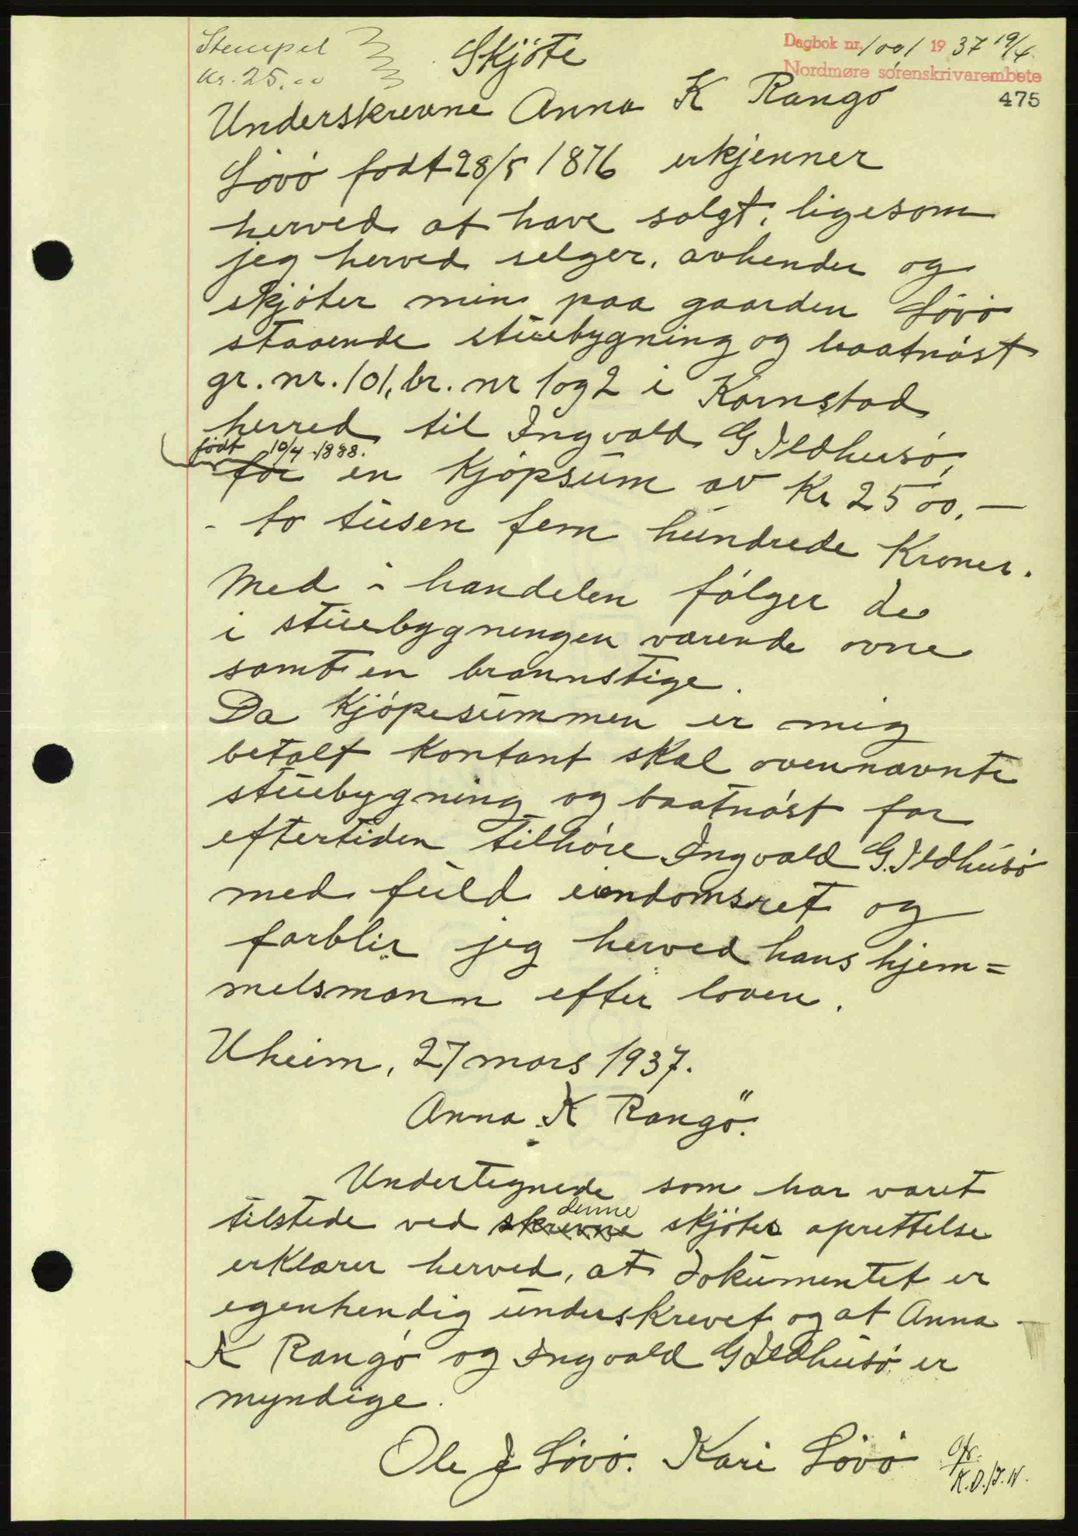 Stempel
Kr. 25.00
Skjöte
Dagbok nr. 1001 1937 19/4
Nordmøre sorenskrivarembete
475
Underskrevne Anna K Rangö
Lövö født 28/5 1876 erkjenner
herved at have solgt, ligesom
jeg herved selger, avhender og
skjöter min paa gaarden Lövö
staaende stuebygning og baatnöst
gr. nr. 101, br. nr 1 og 2 i Kornstad
herred til Ingvald G Ildhusö,
født 10/4 1888.
for en kjöpsum av Kr 2500.—
- to tusen fem hundrede kroner.
Med i handelen fölger de
i stuebygningen værende ovne
samt en brannstige.
Da kjöpesummen er mig
betalt kontant skal ovennævnte
stuebygning og baatnöst for
eftertiden tilhöre Ingvald G. Ildhusö
med fuld eiendomsret og
forblir jeg herved hans hjem=
melsmann efter loven.
Uheim, 27 mars 1937.
Anna K Rangö.
Undertegnede som har været
tilstede ved skrevne denne skjötes oprettelse
erklærer herved, at dokumentet er
egenhendig underskrevet og at Anna
K Rangö og Ingvald G Ildhusö er
myndige.
Ole J Lövö. Kari Lövö
K.D./J.N.